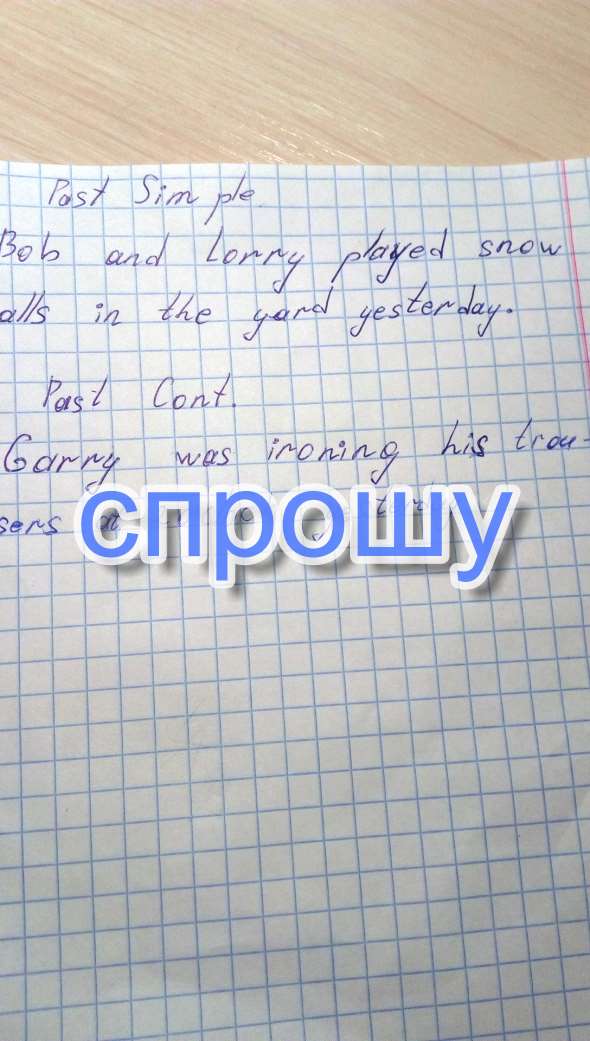 Past Simple.
Bob and Lorry played snow
alls in the yard yesterday.
Past Cont.
Garry was ironing his trou-
sers at
спрошу